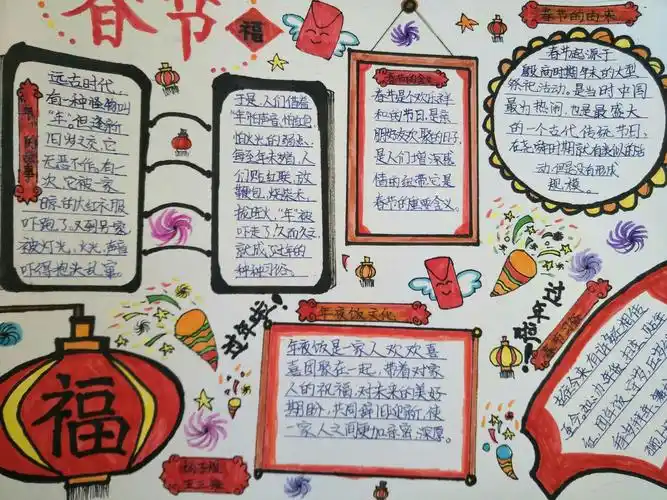 春节
福
春节的由来
"年"的故事
远古时代，
有一种怪物叫
"年"但逢新
旧岁之交，它
无恶不作，有一
次，它被一家
晾的大红衣服
吓跑了，又到另一家
被灯光，火光，声音
吓得抱头乱窜。
于是，人们借着
"年"怕声音，怕红色，
怕火光的弱点，
每至年末岁首，人
们贴红联，放
鞭包，烧柴木，
拢旺火，"年"被
吓走了，久而久之，
就成了过年的
种种习俗。
春节的含义
春节是个欢乐祥
和的节日，是亲
朋好友欢聚的日子，
是人们增深感
情的纽带，它是
春节的重要含义。
春节起源于
殷商时期年末的大型
祭祀活动。是当时中国
最为热闹，也是最盛大
的一个古代传统节日，
在尧舜时期就有类似的活
动，但是没有形成
规模。
过年类！
年夜饭文化
年夜饭是一家人欢欢喜
喜团聚在一起，带着对家
人的祝福，对未来的美好
期盼，共同辞旧迎新，使
一家人之间更加亲密，深厚。
过年啦！！
春节习俗
福